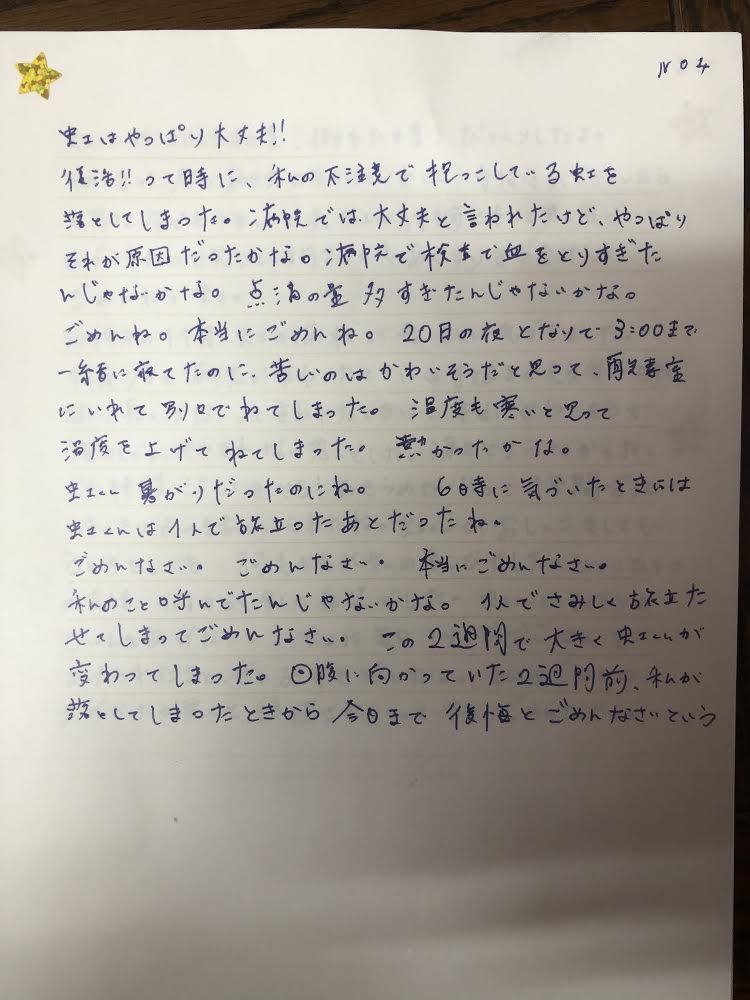 NO4
虹はやっぱり大丈夫!!
復活!!って時に、私の不注意で抱っこしている虹を
落としてしまった。病院では、大丈夫と言われたけど、やっぱり
それが原因だったかな。病院で検査で血をとりすぎた
んじゃないかな。点滴の量多すぎたんじゃないかな。
ごめんね。本当にごめんね。20日の夜となりで3:00まで
一緒に寝てたのに、苦しいのはかわいそうだと思って、酸素室
にいれて別々でねてしまった。温度も寒いと思って
温度を上げてねてしまった。熱かったかな。
虹くん暑がりだったのにね。6時に気づいたときには
虹くんは1人で旅立ったあとだったね。
ごめんなさい。ごめんなさい。本当にごめんなさい。
私のこと呼んでたんじゃないかな。1人でさみしく旅立た
せてしまってごめんなさい。この2週間で大きく虹くんが
変わってしまった。回腹に向かっていた2週間前、私が
落としてしまったときから今日まで後悔とごめんなさいという